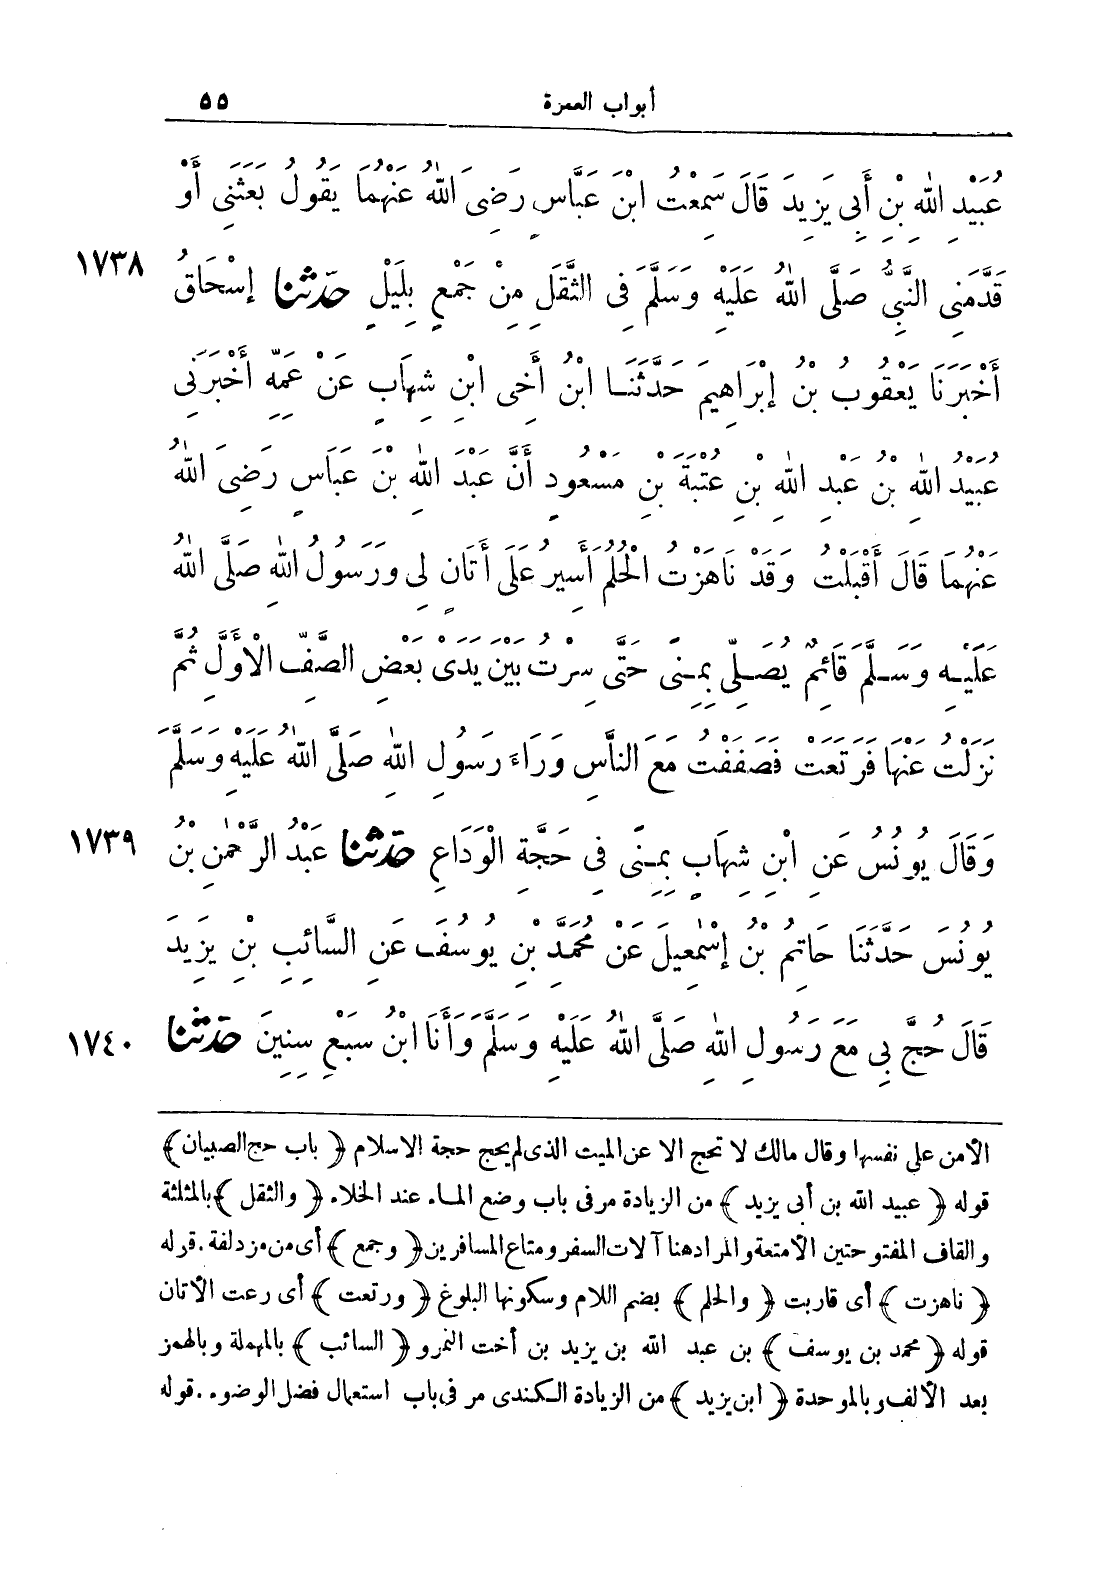 أبواب العمرة ٥٥
عُبَيْدِ اللهِ بْنِ أَبِى يَزِيدَ قَالَ سَمِعْتُ ابْنَ عَبَّاسٍ رَضِىَ اللهُ عَنْهُمَا يَقُولُ بَعَثَنِى أَوْ
قَدَّمَنِى النَّبِىُّ صَلَّى اللهُ عَلَيْهِ وَسَلَّمَ فِى الثَّقَلِ مِنْ جَمْعٍ بِلَيْلٍ حَدَّثَنَا إِسْحَاقُ ١٧٣٨
أَخْبَرَنَا يَعْقُوبُ بْنُ إِبْرَاهِيمَ حَدَّثَنَا ابْنُ أَخِى ابْنِ شِهَابٍ عَنْ عَمِّهِ أَخْبَرَنِى
عُبَيْدُ اللهِ بْنُ عَبْدِ اللهِ بْنِ عُتْبَةَ بْنِ مَسْعُودٍ أَنَّ عَبْدَ اللهِ بْنَ عَبَّاسٍ رَضِىَ اللهُ
عَنْهُمَا قَالَ أَقْبَلْتُ وَقَدْ نَاهَزْتُ الْحُلُمَ أَسِيرُ عَلَى أَتَانٍ لِى وَرَسُولُ اللهِ صَلَّى اللهُ
عَلَيْهِ وَسَلَّمَ قَائِمٌ يُصَلِّى بِمِنًى حَتَّى سِرْتُ بَيْنَ يَدَىْ بَعْضِ الصَّفِّ الْأَوَّلِ ثُمَّ
نَزَلْتُ عَنْهَا فَرَتَعَتْ فَصَفَفْتُ مَعَ النَّاسِ وَرَاءَ رَسُولِ اللهِ صَلَّى اللهُ عَلَيْهِ وَسَلَّمَ
وَقَالَ يُونُسُ عَنِ ابْنِ شِهَابٍ بِمِنًى فِى حَجَّةِ الْوَدَاعِ حَدَّثَنَا عَبْدُ الرَّحْمٰنِ بْنُ ١٧٣٩
يُونُسَ حَدَّثَنَا حَاتِمُ بْنُ إِسْمٰعِيلَ عَنْ مُحَمَّدِ بْنِ يُوسُفَ عَنِ السَّائِبِ بْنِ يَزِيدَ
قَالَ حُجَّ بِى مَعَ رَسُولِ اللهِ صَلَّى اللهُ عَلَيْهِ وَسَلَّمَ وَأَنَا ابْنُ سَبْعِ سِنِينَ حَدَّثَنَا ١٧٤٠
الأمن على نفسها وقال مالك لا تحج الا عن الميت الذى لم يحج حجة الاسلام ﴿ باب حج الصبيان ﴾
قوله ﴿ عبيد الله بن أبى يزيد ﴾ من الزيادة مر فى باب وضع الماء عند الخلاء. ﴿ والثقل ﴾ بالمثلثة
والقاف المفتوحتين الأمتعة والمراد هنا آلات السفر ومتاع المسافرين ﴿ وجمع ﴾ أى من مزدلفة . قوله
﴿ ناهزت ﴾ أى قاربت ﴿ والحلم ﴾ بضم اللام وسكونها البلوغ ﴿ ورتعت ﴾ أى رعت الأتان
قوله ﴿ محمد بن يوسف ﴾ بن عبد الله بن يزيد بن أخت النمر و ﴿ السائب ﴾ بالمهملة وبالهمز
بعد الألف وبالموحدة ﴿ ابن يزيد ﴾ من الزيادة الكندى مر فى باب استعمال فضل الوضوء . قوله